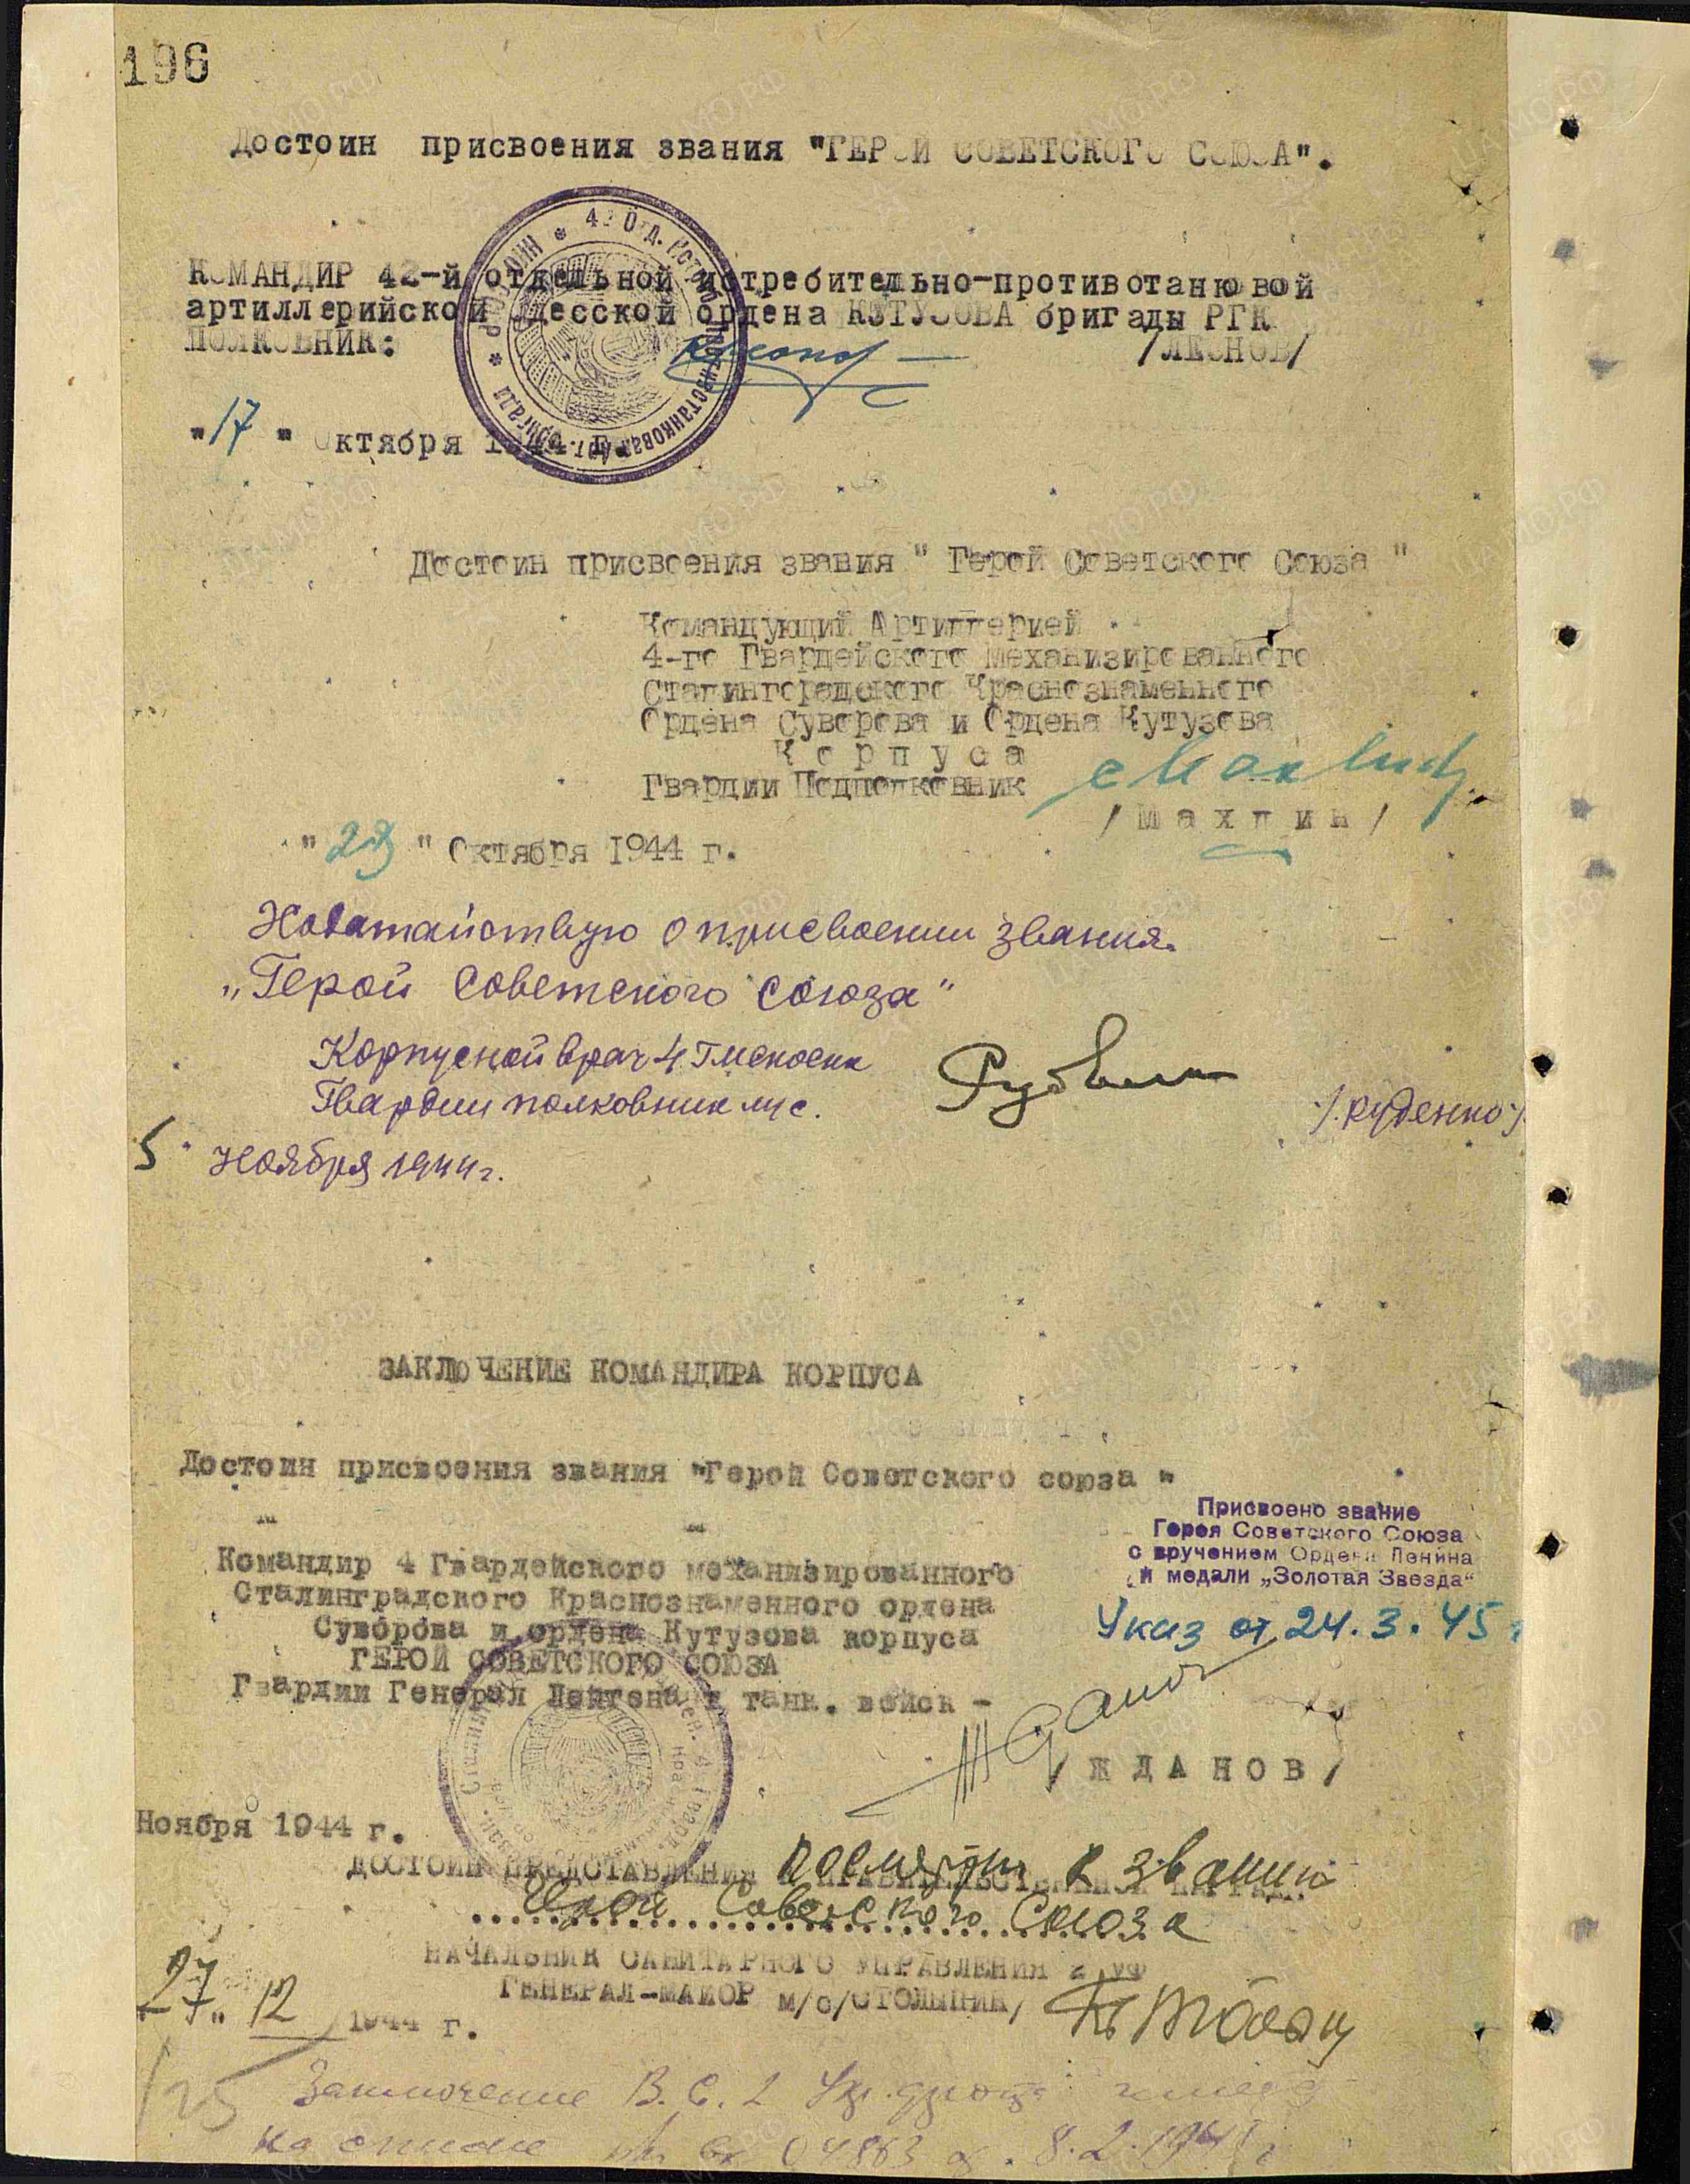 196
Достоин присвоения звания "ГЕРОЙ СОВЕТСКОГО СОЮЗА".
КОМАНДИР 42-й отдельной истребительно-противотанковой
артиллерийской Одесской ордена КУТУЗОВА бригады РГК
ПОЛКОВНИК: /ЛЕОНОВ/
"17" Октября 1944 г.
Достоин присвоения звания " Герой Советского Союза "
Командующий Артиллерией
4-го Гвардейского Механизированного
Сталинградского Краснознаменного
Ордена Суворова и Ордена Кутузова
Корпуса
Гвардии Подполковник
/Махлин/
"29" Октября 1944 г.
Ходатайствую о присвоении звания
„Герой Советского Союза"
Корпусной врач 4
Гвардии полковник м/с.
/.Руденко./
5 Ноября 1944 г.
ЗАКЛЮЧЕНИЕ КОМАНДИРА КОРПУСА
Достоин присвоения звания "Герой Советского союза "
Присвоено звание
Героя Советского Союза
с вручением Ордена Ленина
и медали „Золотая Звезда"
Указ от 24.3.45
Командир 4 Гвардейского механизированного
Сталинградского Краснознаменного ордена
Суворова и ордена Кутузова корпуса
ГЕРОЙ СОВЕТСКОГО СОЮЗА
Гвардии Генерал Лейтенант танк. войск -
/ЖДАНОВ/
Ноября 1944 г.
ДОСТОИН ПРЕДСТАВЛЕНИЯ посмертн к званию
Герой Советского Союза
НАЧАЛЬНИК САНИТАРНОГО УПРАВЛЕНИЯ 2 УФ
ГЕНЕРАЛ-МАЙОР м/с/СТОЛЫПИН/
27 " 12 1944 г.
Заключение В.С. 2 Укр. фронта
на списке вх 04863 8.2.194